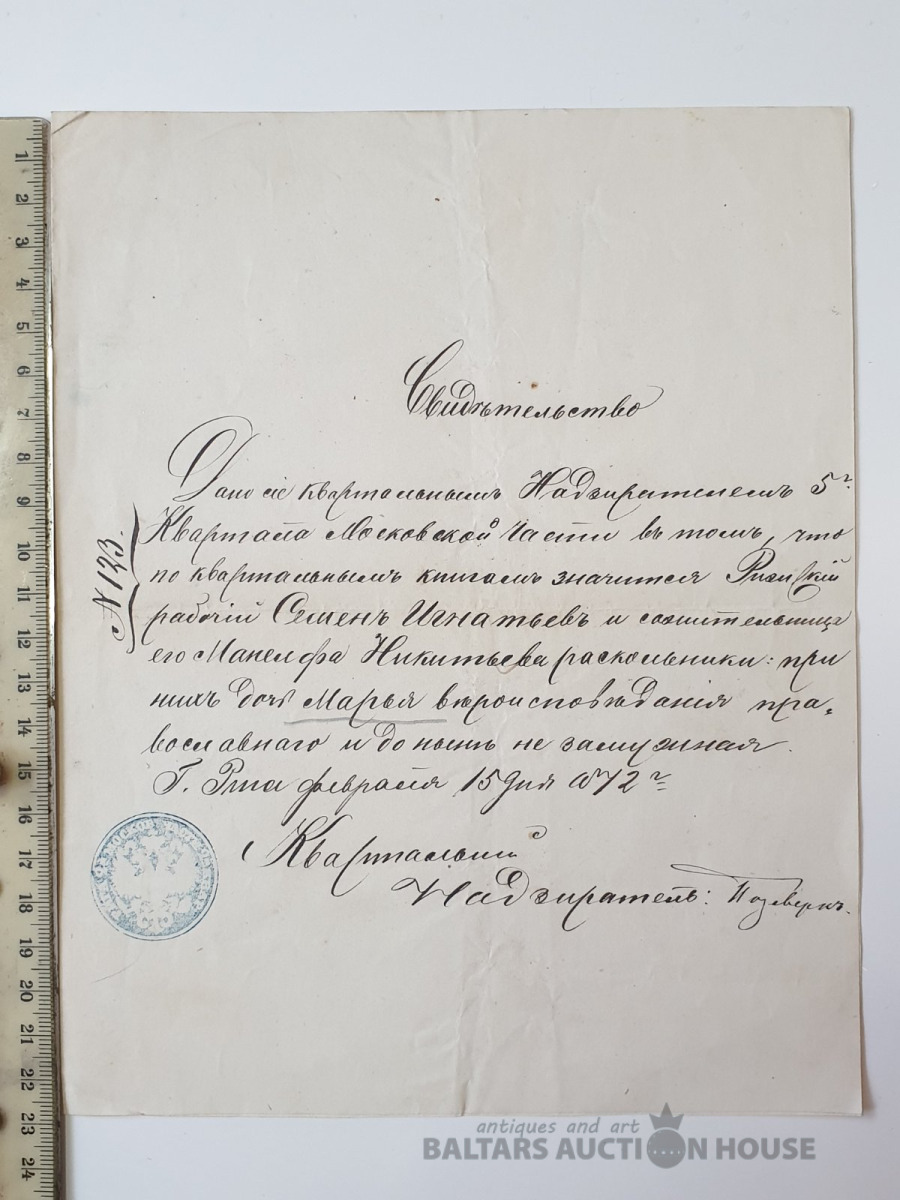 Свидѣтельство
Дано сіе Квартальнымъ Надзирателемъ 5го
Квартала Московской Части въ томъ, что
по квартальнымъ книгамъ значится Рижскій
рабочій Семенъ Игнатьевъ и сожительница
его Манелфа Никитьева раскольники: при
нихъ дочь Марья вѣроисповѣданія пра-
вославнаго и донынѣ не замужная.
Г. Рига февраля 15 дня 1872 г.
N 133.
Квартальный
Надзиратель:
1
2
3
4
5
6
7
8
9
10
11
12
13
14
15
16
17
18
19
20
21
22
23
24
antiques and art
BALTARS AUCTION HOUSE